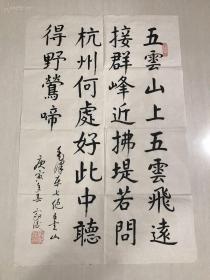 五雲山上五雲飛遠
接群峰近拂堤若問
杭州何處好此中聽
得野鶯啼
毛澤東七絕五雲山
庚寅